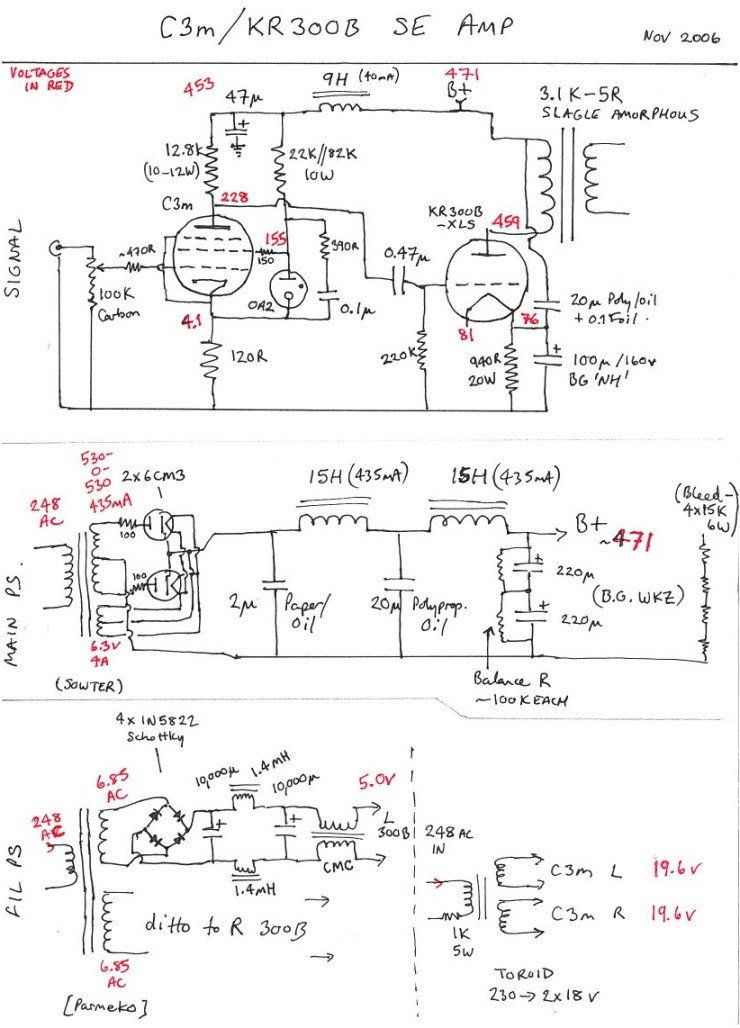 C3m/KR300B SE AMP
NOV 2006
VOLTAGES
IN RED
453
47µ
9H (40mA)
471
B+
3.1K-5R
SLAGLE AMORPHOUS
12.8K
(10-12W)
22K//82K
10W
C3m
228
KR300B
-XLS
459
SIGNAL
~470R
155
150
390R
0.47µ
100K
Carbon
OA2
0.1µ
20µ Poly/oil
+0.1 Foil.
4.1
81
76
120R
220K
940R
20W
100µ/160v
BG 'NH'
MAIN PS.
530-
0-
530
435mA
2x6CM3
248
AC
100
100
15H (435mA)
15H (435mA)
B+
~471
(Bleed-)
4x15K
6W)
2µ
Paper/
Oil
20µ
Polyprop.
Oil
220µ
220µ
(B.G. WKZ)
6.3v
4A
(SOWTER)
Balance R
~100K EACH
FIL PS
4x 1N5822
Schottky
6.85
AC
10,000µ
1.4mH
10,000µ
5.0v
248
AC
L
300B
CMC
1.4mH
ditto to R 300B
6.85
AC
[Parmeko]
248 AC
IN
C3m L 19.6v
C3m R 19.6v
1K
5W
TOROID
230→2x18v